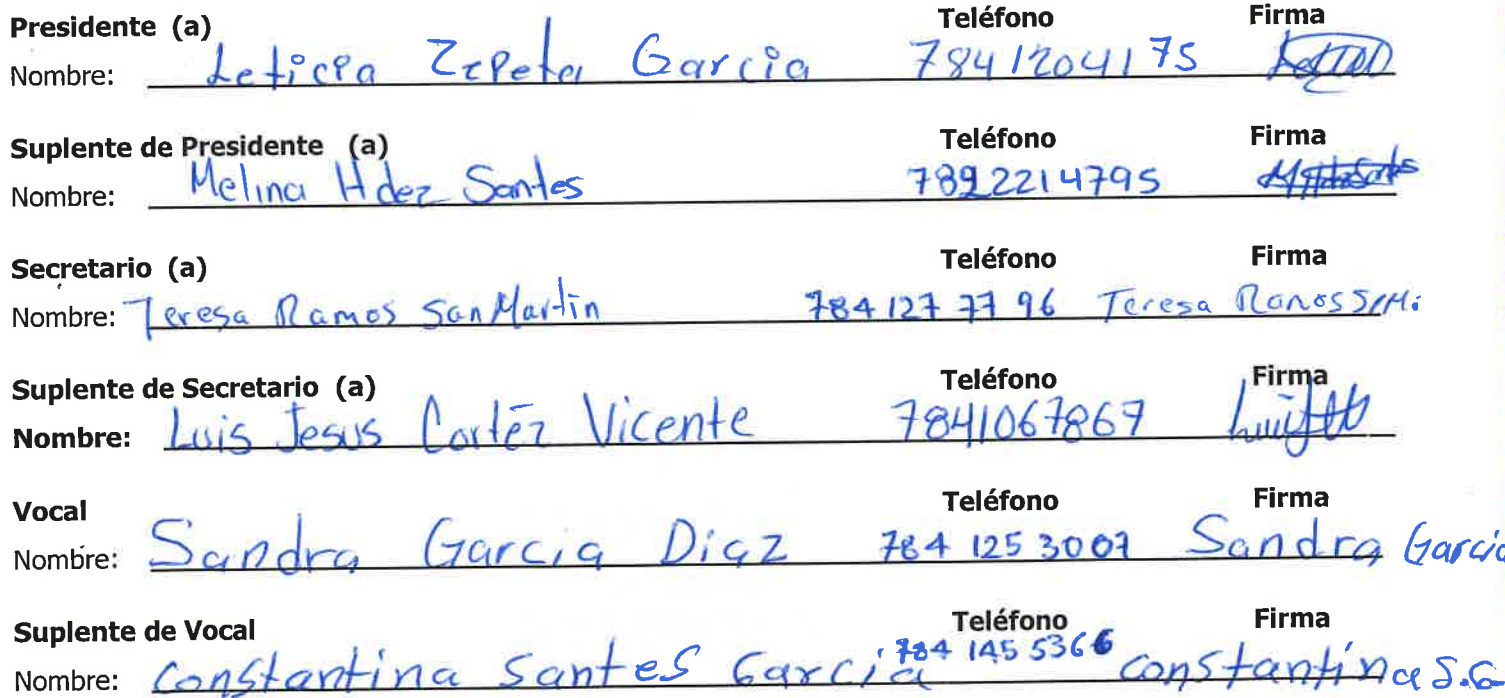 Presidente (a) Teléfono Firma
Nombre: Leticia Zepeta Garcia 7841204175
Suplente de Presidente (a) Teléfono Firma
Nombre: Melina Hdez Santes 7892214795
Secretario (a) Teléfono Firma
Nombre: Teresa Ramos San Martin 784 127 77 96 Teresa Ramos S.M.
Suplente de Secretario (a) Teléfono Firma
Nombre: Luis Jesus Cortéz Vicente 7841067867
Vocal Teléfono Firma
Nombre: Sandra Garcia Diaz 784 125 3007 Sandra Garcia
Suplente de Vocal Teléfono Firma
Nombre: Constantina Santes Garcia 784 145 5366 Constantina S.G